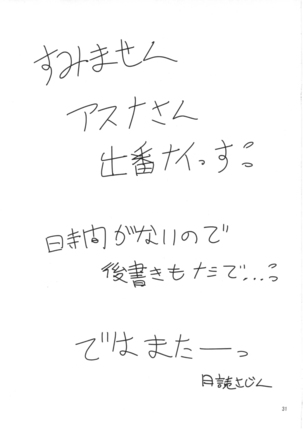 すみません
アスナさん
出番ナイっす:。
時間がないので
後書きもナシで…:。
ではまたーっ
月読よじん
21